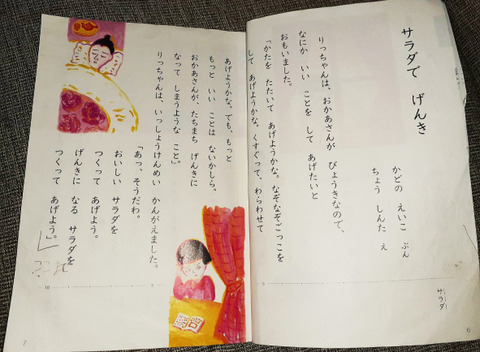 サラダで げんき
かどの えいこ ぶん
ちょう しんた え
りっちゃんは、おかあさんが びょうきなので、
なにか いい ことを して あげたいと
おもいました。
「かたを たたいて あげようかな。なぞなぞごっこを
して あげようかな。くすぐって、わらわせて
サラダ
6
あげようかな。でも、もっと
もっと いい ことは ないかしら。
おかあさんが、たちまち げんきに
なって しまうような こと。」
りっちゃんは、いっしょうけんめい かんがえました。
「あっ、そうだわ。
おいしい サラダを
つくって あげよう。
げんきに なる サラダを
つくって あげよう。」
10
7